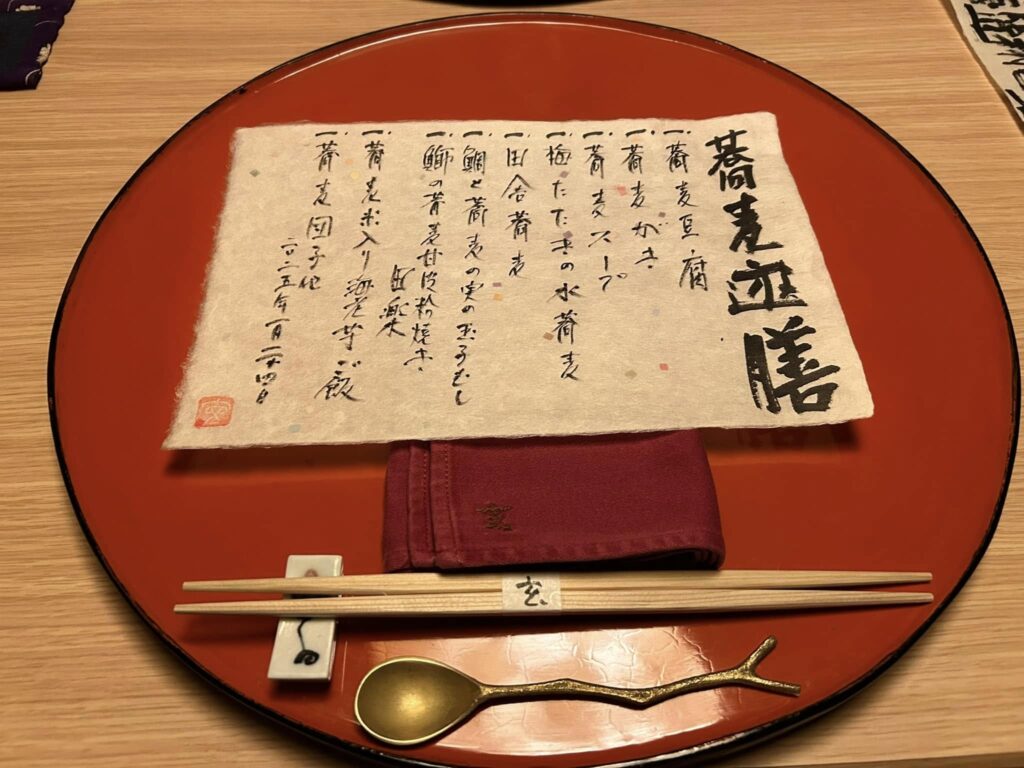 蕎麦遊膳
一、蕎麦豆腐
一、蕎麦がき
一、蕎麦スープ
一、梅たたきの水蕎麦
一、田舎蕎麦
一、鯛と蕎麦の実の玉子むし
一、鰤の蕎麦甘皮粉焼き
一、蕎麦米入り海老芋ご飯
一、蕎麦団子他
二〇二五年一月二十四日
玄